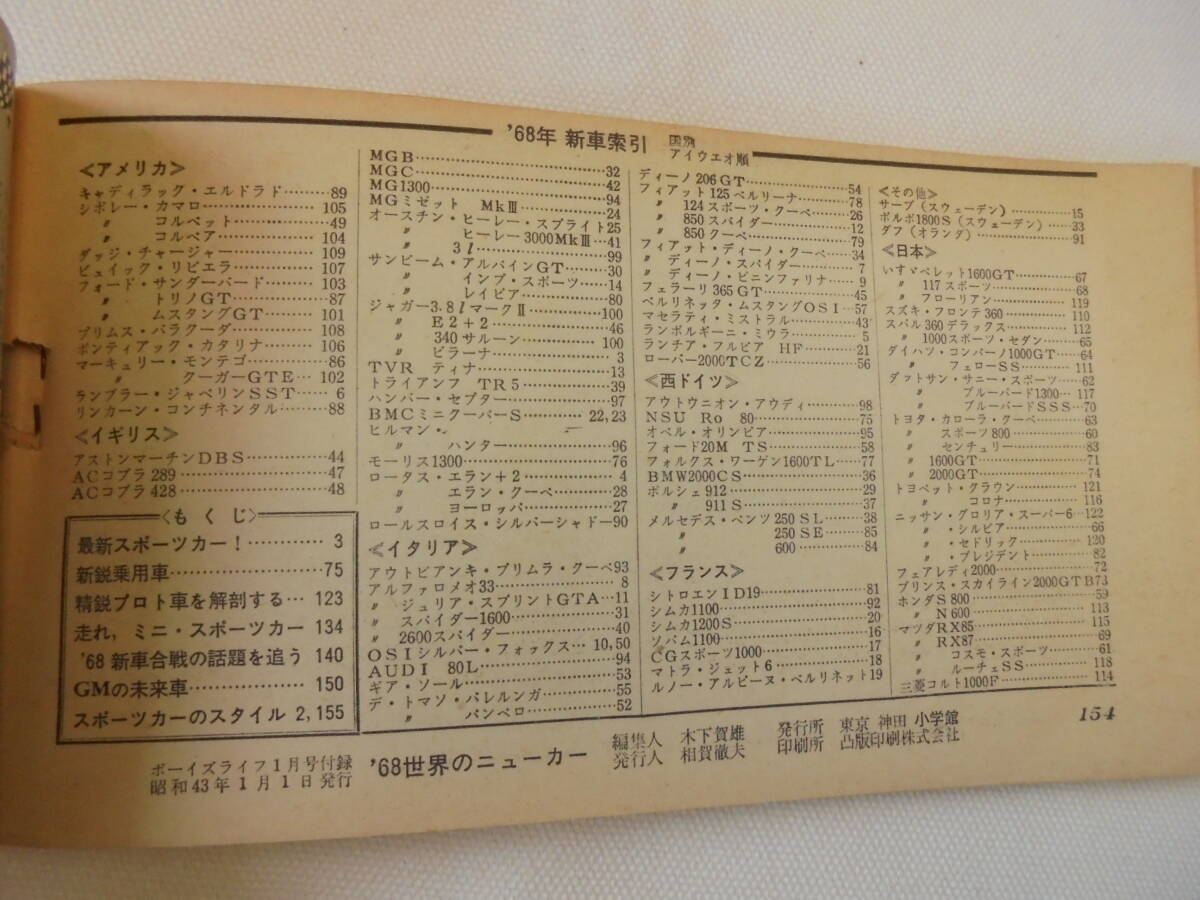 '68年 新車索引 国別 アイウエオ順
≪アメリカ≫
キャディラック・エルドラド……89
シボレー・カマロ……105
〃 コルベット……49
〃 コルベア……104
ダッジ・チャージャー……109
ビュイック・リビエラ……107
フォード・サンダーバード……103
〃 トリノGT……87
〃 ムスタングGT……101
プリムス・バラクーダ……108
ポンティアック・カタリナ……106
マーキュリー・モンテゴ……86
〃 クーガーGTE…102
ランブラー・ジャベリンSST……6
リンカーン・コンチネンタル……88
≪イギリス≫
アストンマーチンDBS……44
ACコブラ289……47
ACコブラ428……48
MGB……32
MGC……42
MG1300……94
MGミゼット MkⅢ……24
オースチン・ヒーレー・スプライト25
〃 ヒーレー3000MkⅢ…41
〃 3l……99
サンビーム・アルパインGT……30
〃 インプ・スポーツ……14
〃 レイピア……80
ジャガー3.8lマークⅡ……100
〃 E2+2……46
〃 340サルーン……100
〃 ピラーナ……3
TVR ティナ……13
トライアンフ TR5……39
ハンバー・セプター……97
BMCミニクーパーS……22,23
ヒルマン・
〃 ハンター……96
モーリス1300……76
ロータス・エラン+2……4
〃 エラン・クーペ……28
〃 ヨーロッパ……27
ロールスロイス・シルバーシャドー90
≪イタリア≫
アウトビアンキ・プリムラ・クーペ93
アルファロメオ33……8
〃 ジュリア・スプリントGTA…11
〃 スパイダー1600……31
〃 2600スパイダー……40
OSIシルバー・フォックス…10,50
AUDI 80L……94
ギア・ソール……53
デ・トマソ・バレルンガ……55
〃 パンペロ……52
ディーノ206GT……54
フィアット125ベルリーナ……78
〃 124スポーツ・クーペ……26
〃 850スパイダー……12
〃 850クーペ……79
フィアット・ディーノ・クーペ……34
〃 ディーノ・スパイダー……7
〃 ディーノ・ピニンファリナ……9
フェラーリ365GT……45
ベルリネッタ・ムスタングOSI…57
マセラティ・ミストラル……43
ランボルギーニ・ミウラ……5
ランチア・フルビア HF……21
ローバー2000TCZ……56
≪西ドイツ≫
アウトウニオン・アウディ……98
NSU Ro 80……75
オペル・オリンピア……95
フォード20M TS……58
フォルクス・ワーゲン1600TL……77
BMW2000CS……36
ポルシェ912……29
〃 911S……37
メルセデス・ベンツ250SL……38
〃 250SE……85
〃 600……84
≪フランス≫
シトロエンID19……81
シムカ1100……92
シムカ1200S……20
ソバム1100……16
CGスポーツ1000……17
マトラ・ジェット6……18
ルノー・アルピーヌ・ベルリネット19
≪その他≫
サーブ(スウェーデン)……15
ボルボ1800S(スウェーデン)……33
ダフ(オランダ)……91
≪日本≫
いすゞベレット1600GT……67
〃 117スポーツ……68
〃 フローリアン……119
スズキ・フロンテ360……110
スバル360デラックス……112
〃 1000スポーツ・セダン……65
ダイハツ・コンパーノ1000GT……64
〃 フェローSS……111
ダットサン・サニー・スポーツ……62
〃 ブルーバード1300…117
〃 ブルーバードSSS…70
トヨタ・カローラ・クーペ……63
〃 スポーツ800……60
〃 センチュリー……83
〃 1600GT……71
〃 2000GT……74
トヨペット・クラウン……121
〃 コロナ……116
ニッサン・グロリア・スーパー6…122
〃 ・シルビア……66
〃 ・セドリック……120
〃 ・プレジデント……82
フェアレディ2000……72
プリンス・スカイライン2000GTB73
ホンダS800……59
〃 N600……113
マツダRX85……115
〃 RX87……69
〃 コスモ・スポーツ……61
〃 ルーチェSS……118
三菱コルト1000F……114
<もくじ>
最新スポーツカー!……3
新鋭乗用車……75
精鋭プロト車を解剖する…123
走れ,ミニ・スポーツカー 134
'68新車合戦の話題を追う 140
GMの未来車……150
スポーツカーのスタイル 2,155
ボーイズライフ1月号付録
昭和43年1月1日発行
'68世界のニューカー
編集人 木下賀雄
発行人 相賀徹夫
発行所 東京 神田 小学館
印刷所 凸版印刷株式会社
154